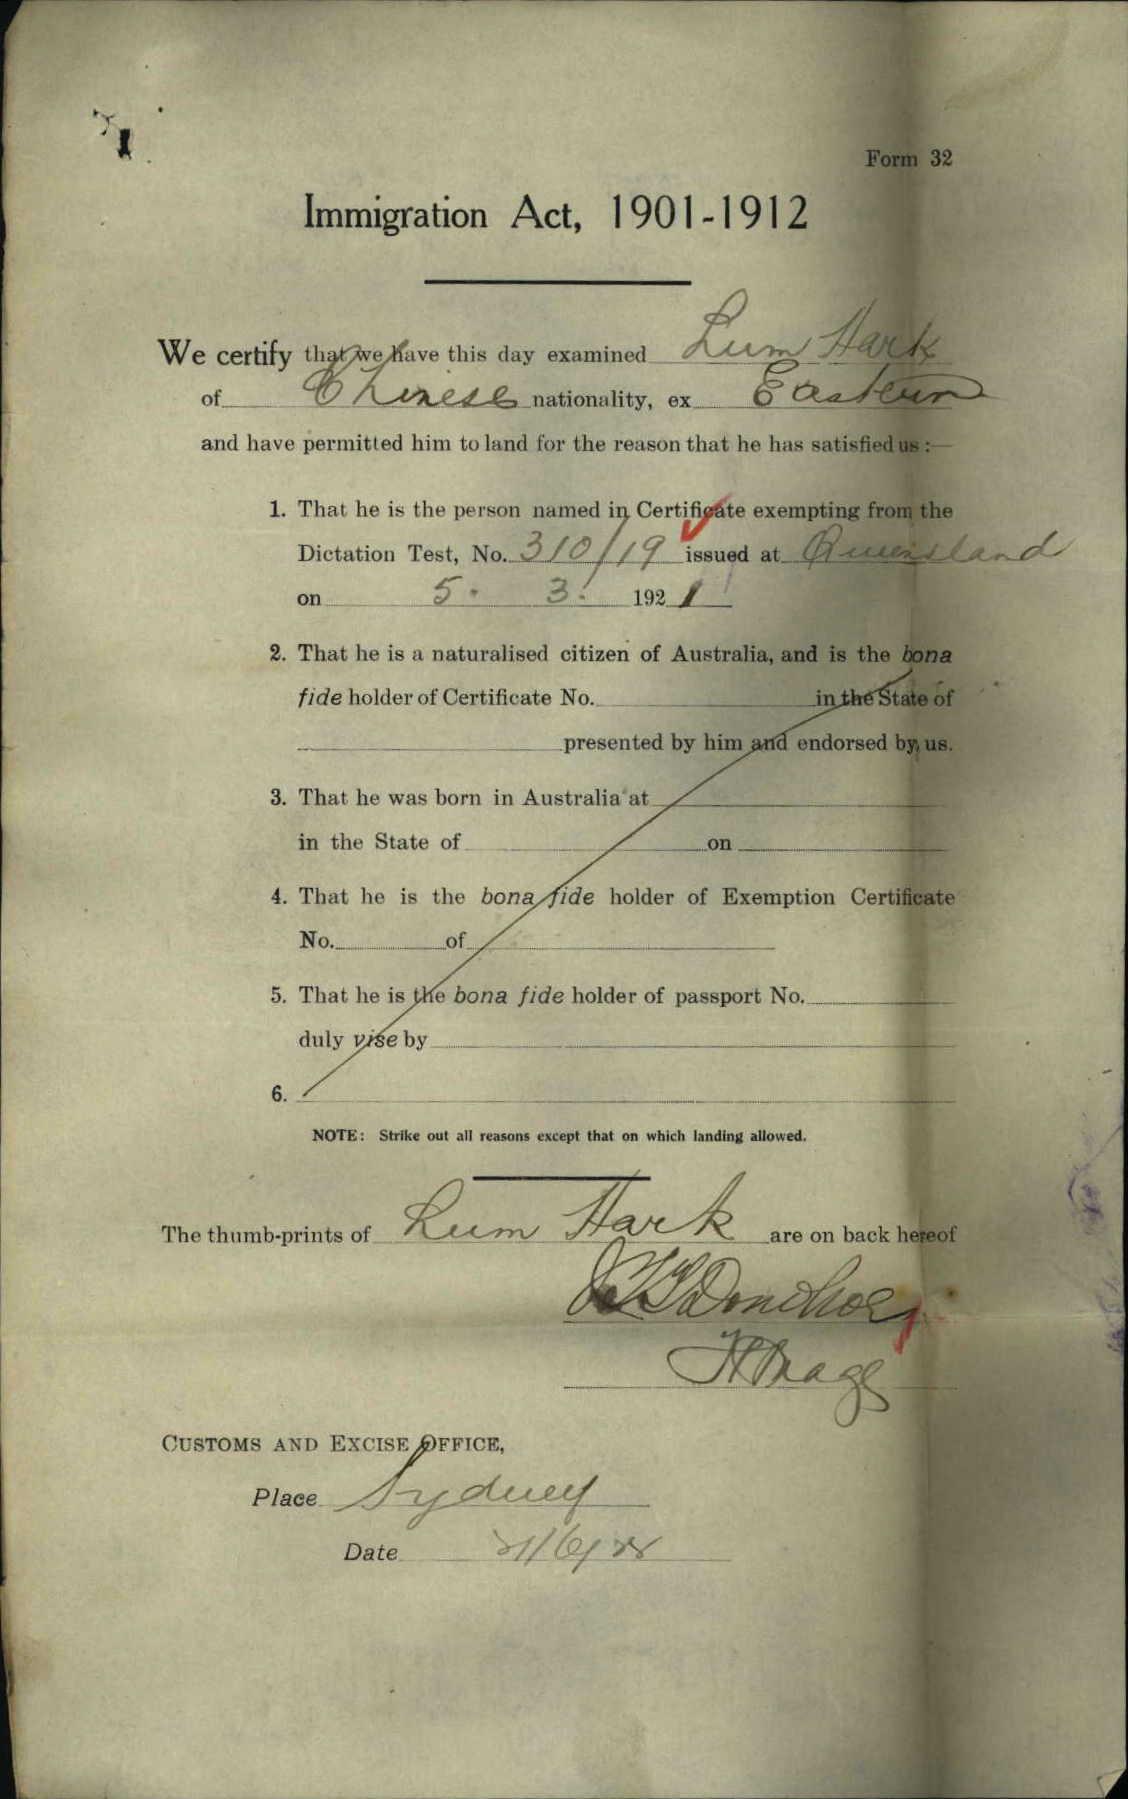 Form 32
Immigration Act, 1901-1912
We certify that we have this day examined Lum Hark
of Chinese nationality, ex Eastern
and have permitted him to land for the reason that he has satisfied us :—
1. That he is the person named in Certificate exempting from the
Dictation Test, No. 310/19 issued at Queensland
on 5. 3. 1921
2. That he is a naturalised citizen of Australia, and is the bona
fide holder of Certificate No. in the State of
presented by him and endorsed by us.
3. That he was born in Australia at
in the State of on
4. That he is the bona fide holder of Exemption Certificate
No. of
5. That he is the bona fide holder of passport No.
duly vise by
6.
NOTE: Strike out all reasons except that on which landing allowed.
The thumb-prints of Lum Hark are on back hereof
Donohoe
CUSTOMS AND EXCISE OFFICE,
Place Sydney
Date